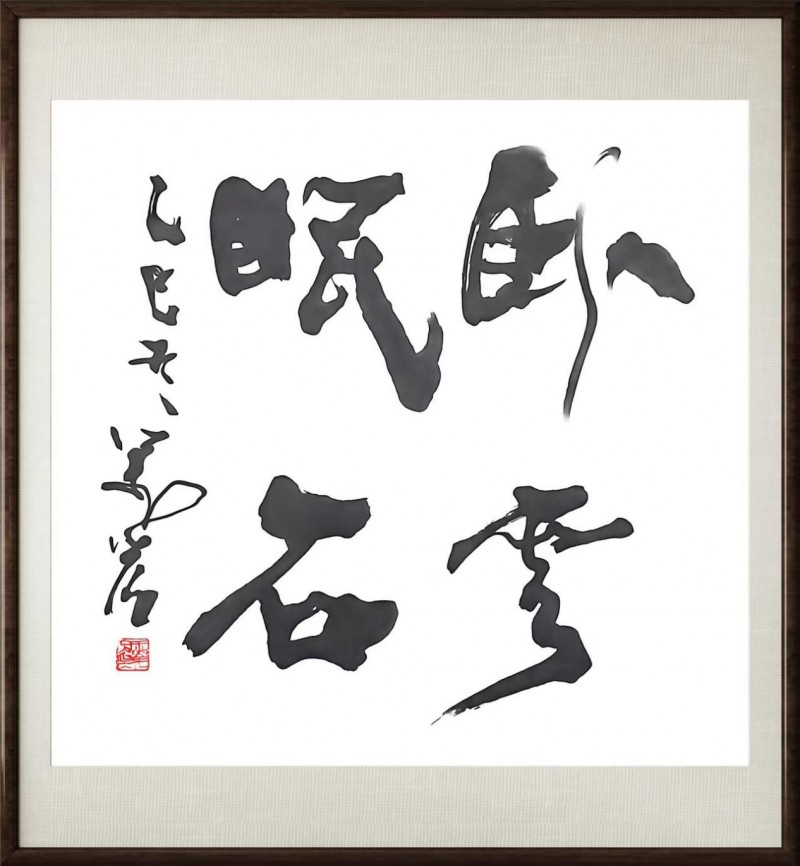 卧雲
眠石
乙巳